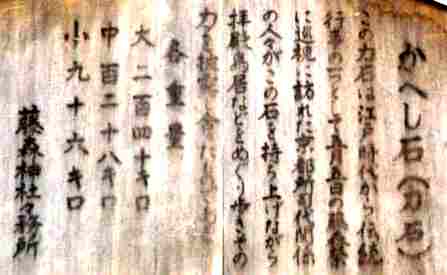 かへし石(力石)
この力石は江戸時代から伝統
行事の一つとして五月五日の藤森祭
に巡視に訪れた京都所司代関係
の人々がこの石を持ち上げながら
拝殿鳥居などをめぐり歩きその
力を
各重量
大 二百四十キロ
中 百二十八キロ
小 九十六キロ
藤森神社々務所